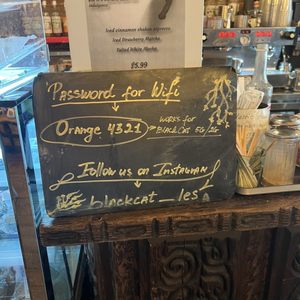 Iced cinnamon shaken espresso
Iced Strawberry Matcha
Salted White Mocha
$5.99
PASSWORD for Wifi
Orange 4321
WORKS for
BLACKCAT 5G/2G
Follow us on INSTAGRAM
blackcat_les